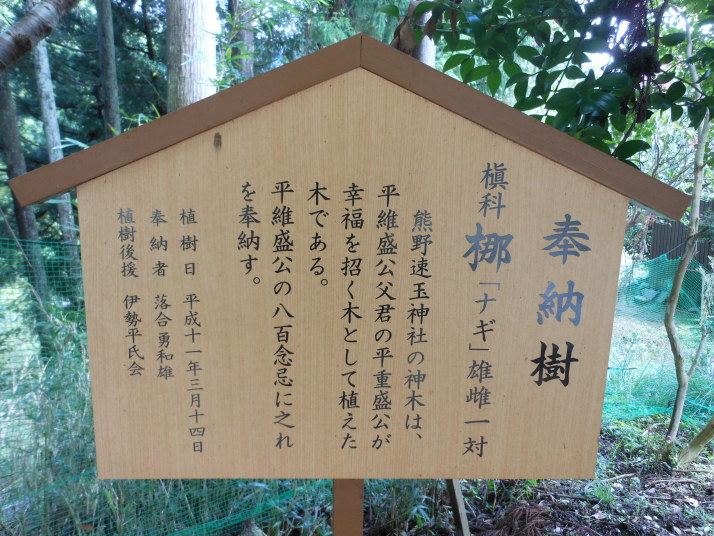 奉納樹
槇科梛「ナギ」雄雌一対
熊野速玉神社の神木は、
平維盛公父君の平重盛公が
幸福を招く木として植えた
木である。
平維盛公の八百念忌に之れ
を奉納す。
植樹日 平成十一年三月十四日
奉納者 落合勇和雄
植樹後援 伊勢平氏会